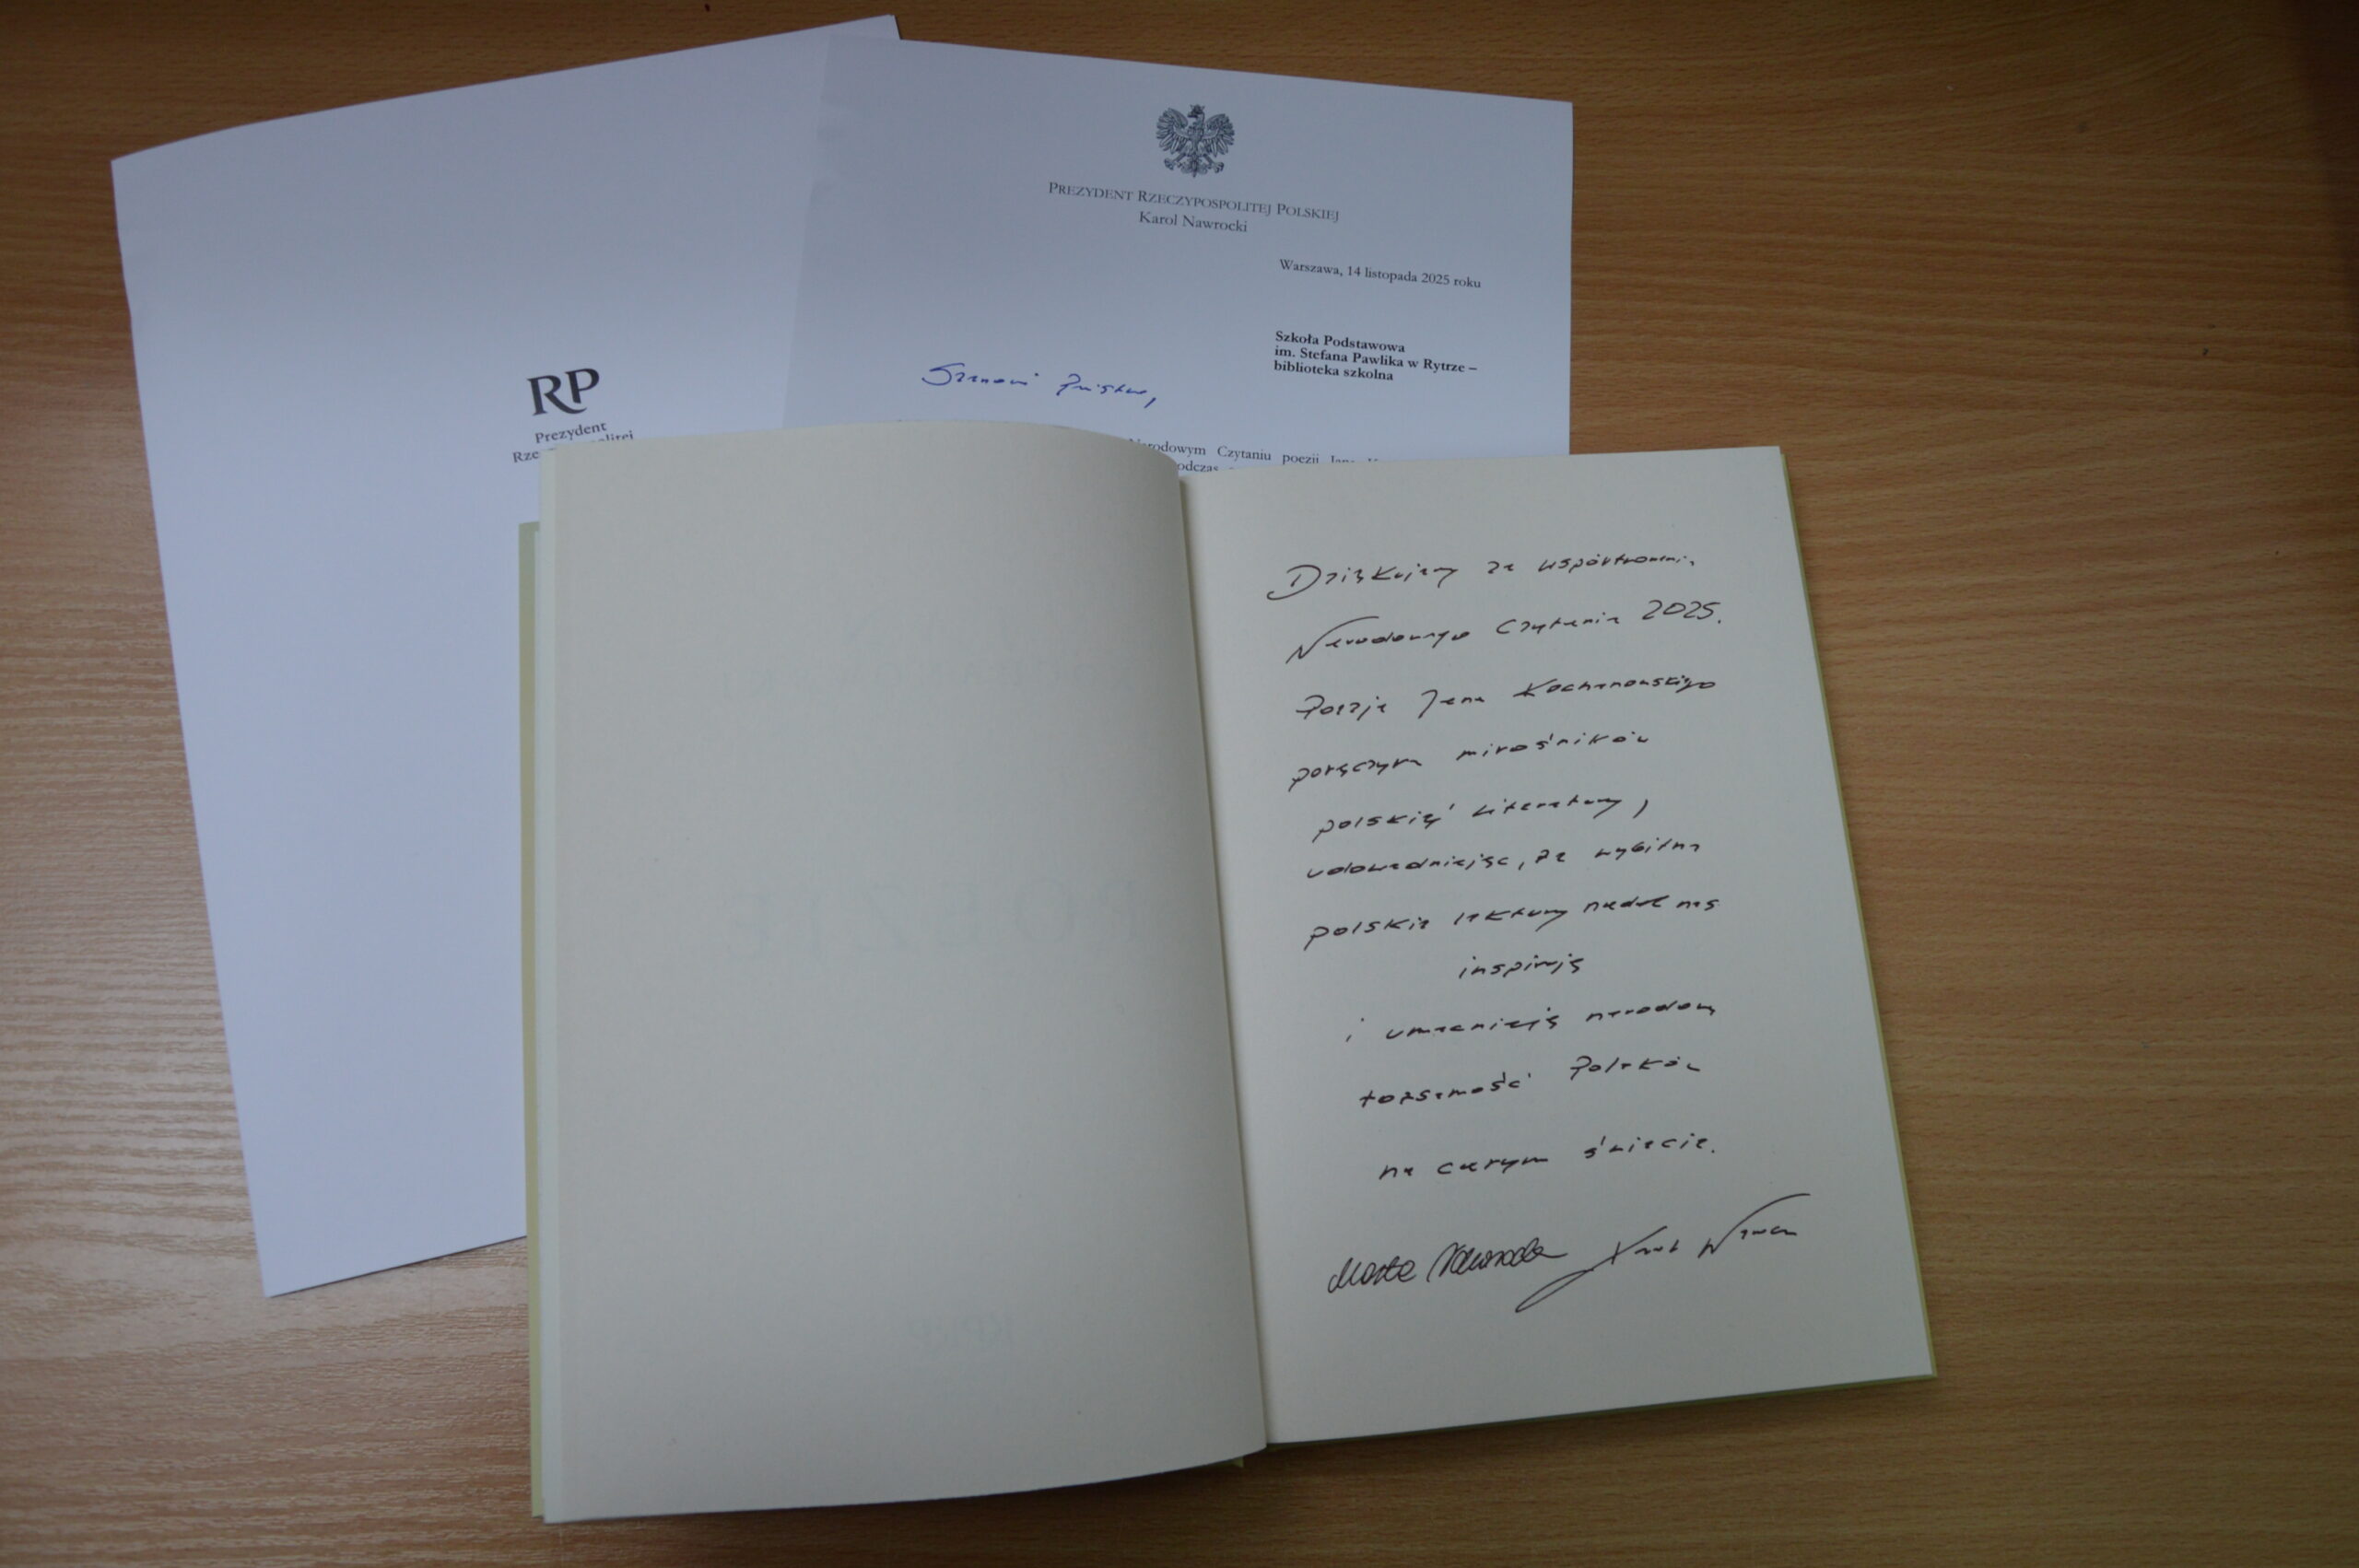 PREZYDENT RZECZYPOSPOLITEJ POLSKIEJ
Karol Nawrocki
Warszawa, 14 listopada 2025 roku
Szkoła Podstawowa
im. Stefana Pawlika w Rytrze –
biblioteka szkolna
Szanowni Państwo,
Narodowym Czytaniu poezji Jana
RP
Prezydent
Dziękujemy za współtworzenie
Narodowego Czytania 2025.
Poezja Jana Kochanowskiego
połączyła miłośników
polskiej literatury,
udowadniając, że wybitne
polskie lektury nadal nas
inspirują
i umacniają narodową
tożsamość Polaków
na całym świecie.
Marta Nawrocka Karol Nawrocki
POEZJE
KPRP